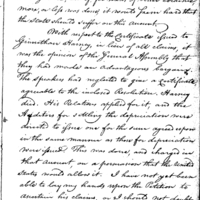 more, or less was due it would have hard that
the State should suffer on this account.
With respect to the Certificate issued to
Jonathan Harvey, in lieu of all claims, it
was the opinion of the General Assembly that
they had made an advantageous bargain.
The speakers had neglected to give a certificate
agreeable to the inclosed Resolution. Harvey
died. His Relations applied for it, and the
Auditors for settling the depreciation were
directed to issue one for the same agreed upon
in the same manner as those for depreciation
were issued. This was done, and charged in
that account on a presumption that the United
States would allow it. I have not yet been
able to lay my hands upon the Petition to
ascertain his claims, or I should not doubt